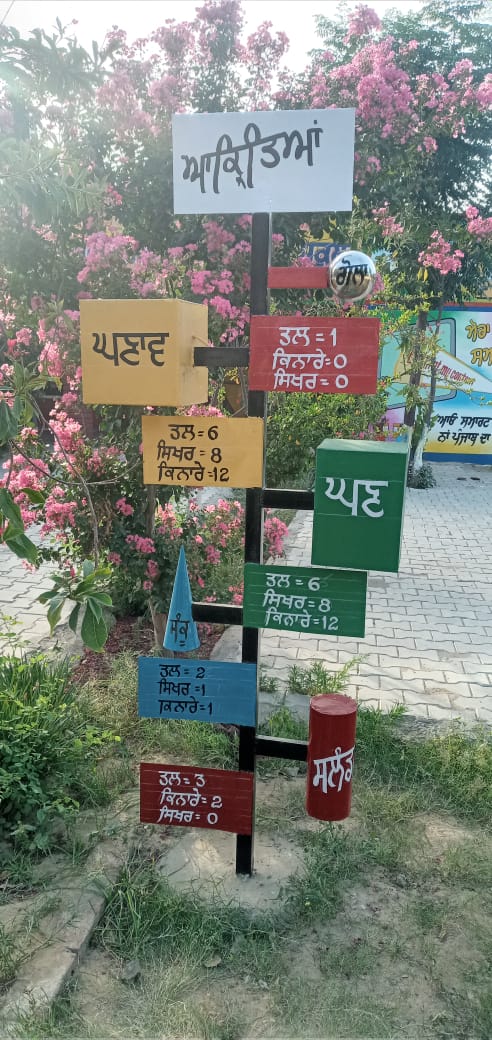 ਆਕ੍ਰਿਤਿਆਂ
ਗੋਲਾ
ਤਲ = 1
ਕਿਨਾਰੇ = 0
ਸਿਖਰ = 0
ਘਣਾਵ
ਤਲ = 6
ਸਿਖਰ = 8
ਕਿਨਾਰੇ = 12
ਘਣ
ਤਲ = 6
ਸਿਖਰ = 8
ਕਿਨਾਰੇ = 12
ਸ਼ੰਕੂ
ਤਲ = 2
ਸਿਖਰ = 1
ਕਿਨਾਰੇ = 1
ਸਲੰਡਰ
ਤਲ = 3
ਕਿਨਾਰੇ = 2
ਸਿਖਰ = 0
ਮੇਰਾ
ਆਓ ਸਮਾਰਟ
ਨਾਂ ਪੰਜਾਬ ਦਾ